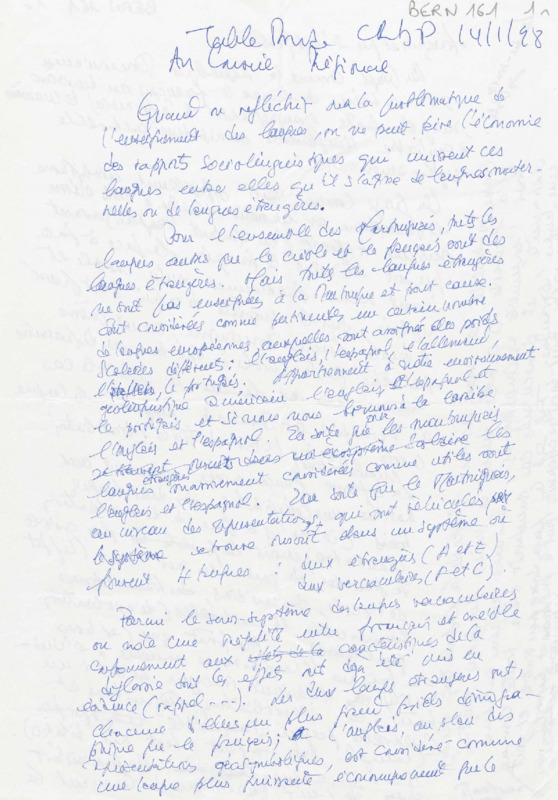 BERN 161 1
Table Ronde CRDP 14/1/98
An Caraïbe Régionale
Quand on réfléchit sur la problématique de
l'enseignement des langues, on ne peut faire l'économie
des rapports sociolinguistiques qui unissent ces
langues entre elles qu'il s'agisse de langues mater-
nelles ou de langues étrangères.
Pour l'ensemble des Martiniquais, toutes les
langues autres que le créole et le français sont des
langues étrangères. Mais toutes les langues étrangères
ne sont pas enseignées à la Martinique et pour cause.
Sont considérées comme pertinentes un certain nombre
de langues européennes auxquelles sont des poids
scolaires différents : l'anglais, l'espagnol, l'allemand,
l'italien, le portugais. Appartiennent à notre environnement
géolinguistique américain l'anglais, l'espagnol et
le portugais et si nous nous bornons à la Caraïbe
l'anglais et l'espagnol. En sorte que les martiniquais
dans un écosystème scolaire les
langues étrangères considérées comme utiles sont
l'anglais et l'espagnol. Une sorte que le Martiniquais,
au niveau des représentations qui sont véhiculées par
le système se trouve inscrit dans un système où
4 langues : deux étrangères (A et E)
deux vernaculaires (F et C).
Parmi le sous-système des langues vernaculaires
on note une inégalité entre français et créole
conformément aux caractéristiques de la
diglossie dont les effets ont déjà été mis en
évidence (rappel ----). Les deux langues étrangères ont,
chacune d'elles un plus grand poids démogra-
phique que le français ; l'anglais, au plan des
représentations géosymboliques, est considéré comme
une langue plus puissante économiquement que le